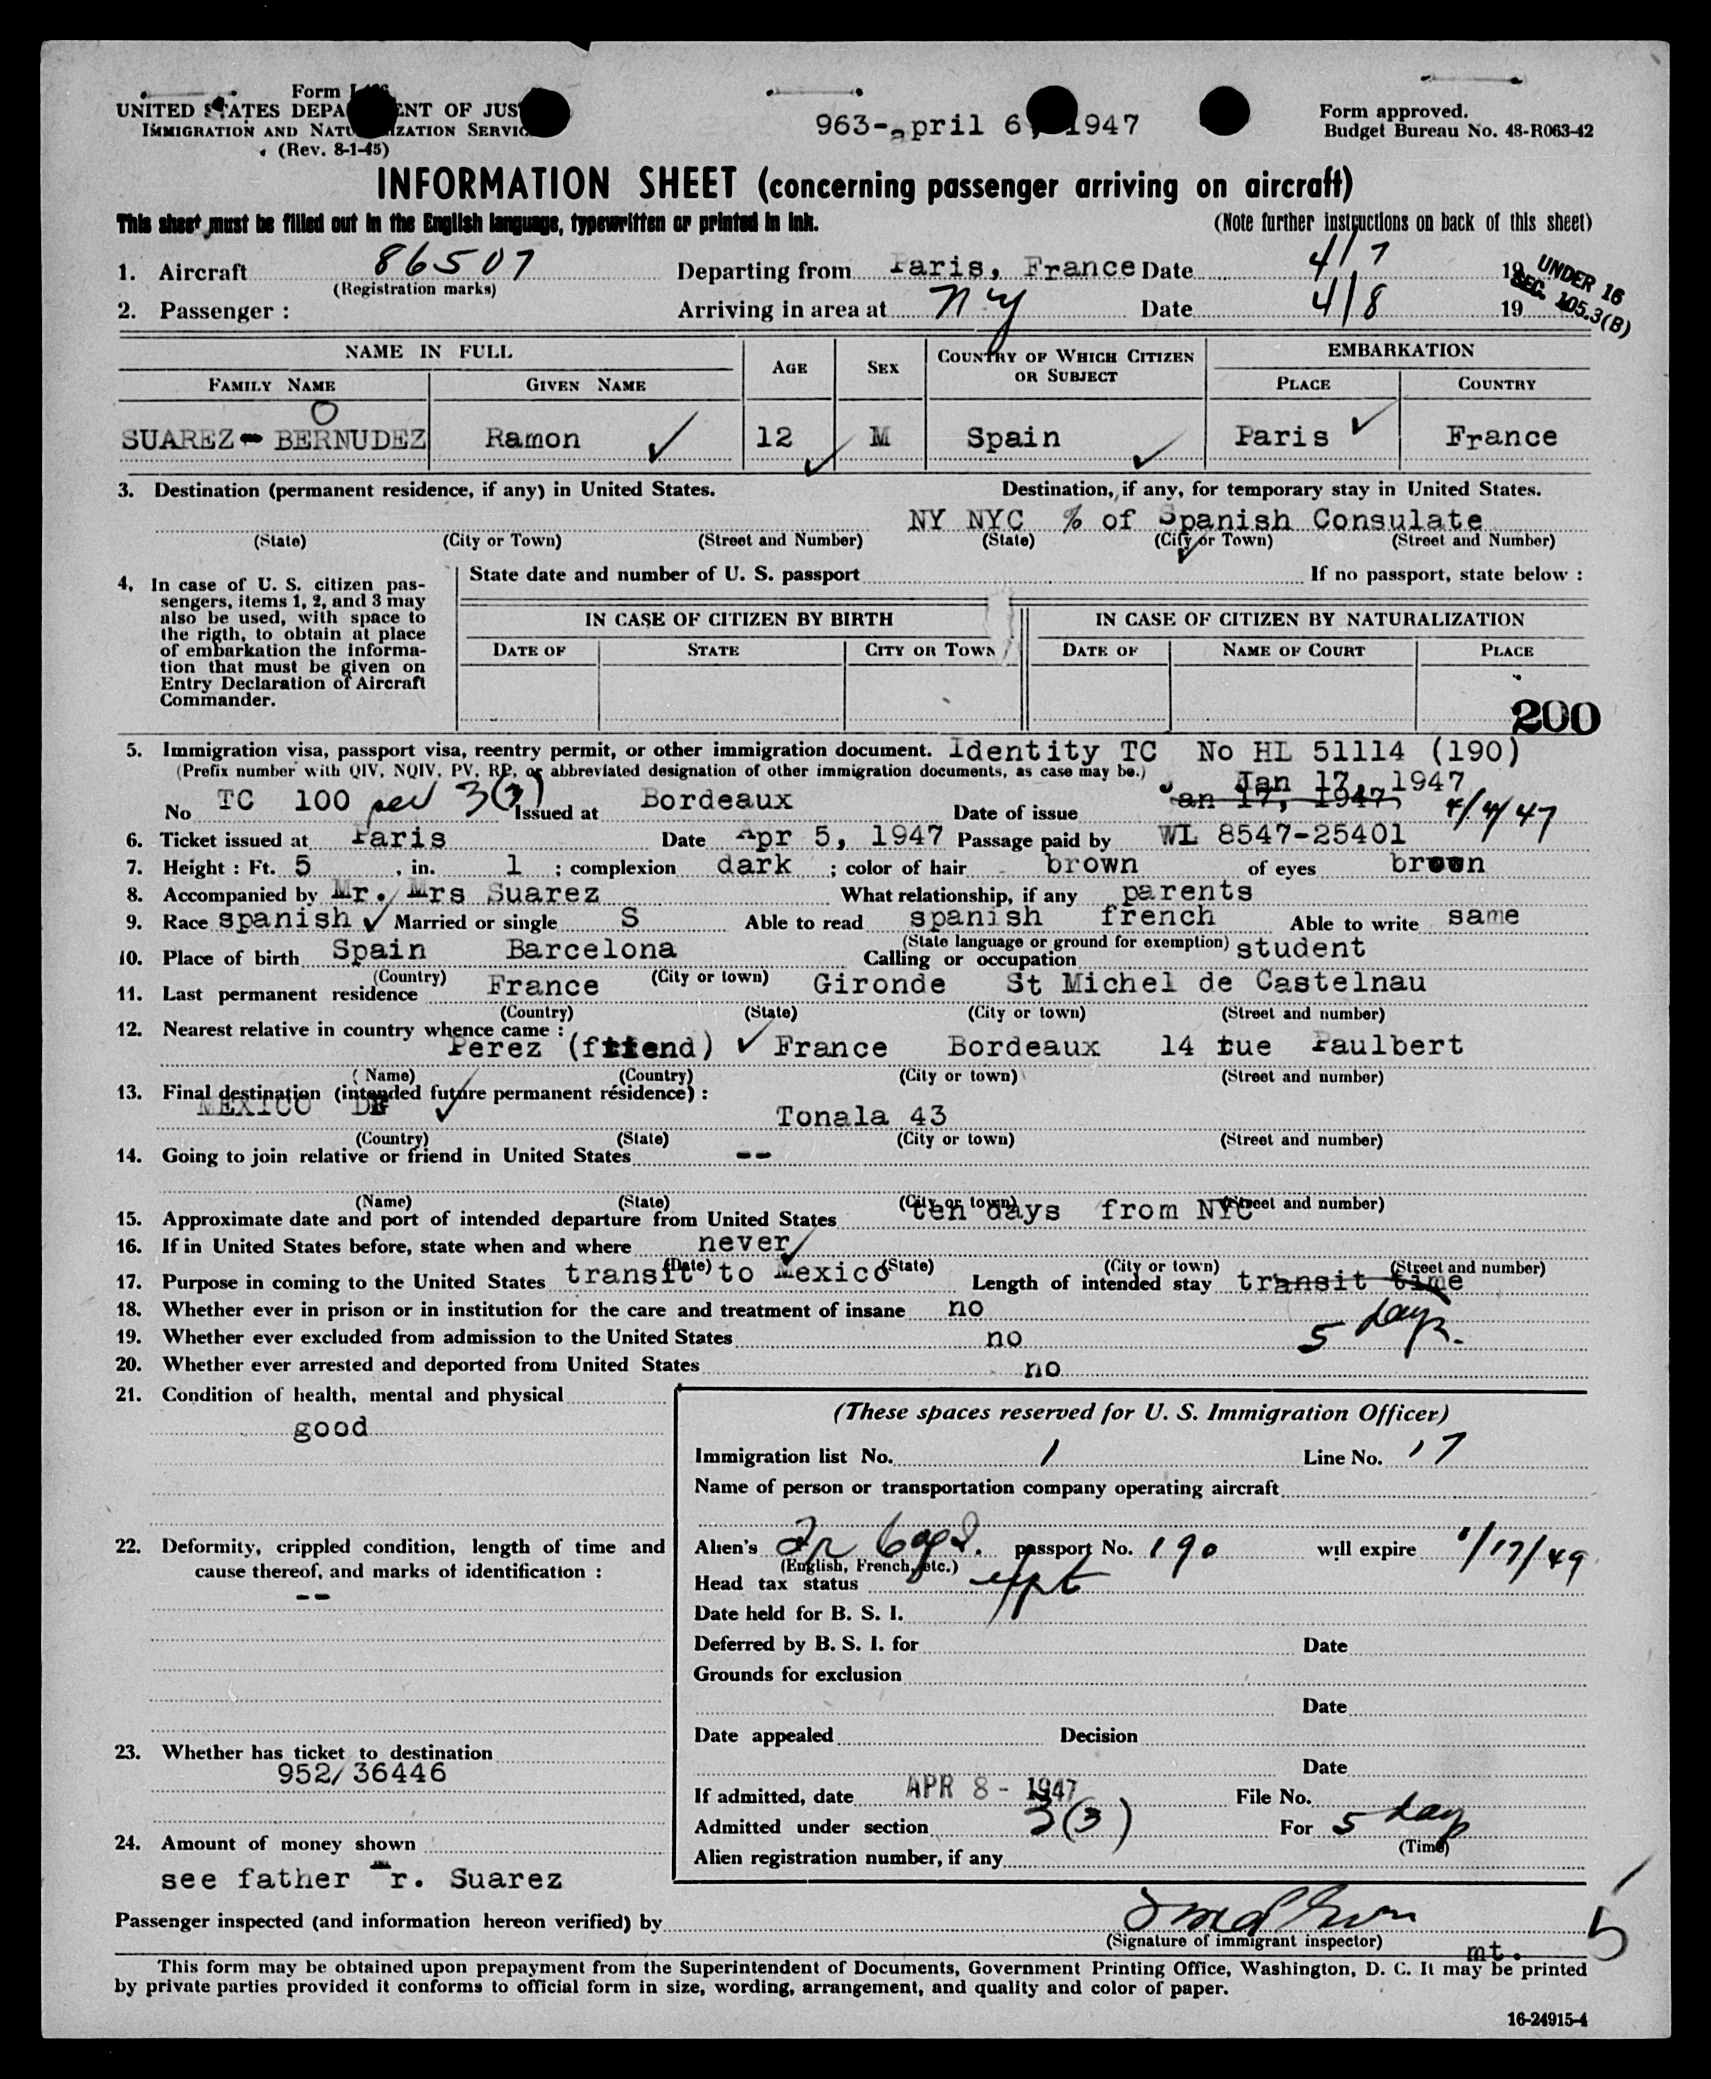 Form I-466
UNITED STATES DEPARTMENT OF JUSTICE
IMMIGRATION AND NATURALIZATION SERVICE
(Rev. 8-1-45)
963-april 6, 1947
Form approved.
Budget Bureau No. 48-R063-42
INFORMATION SHEET (concerning passenger arriving on aircraft)
This sheet must be filled out in the English language, typewritten or printed in ink. (Note further instructions on back of this sheet)
1. Aircraft 86507 Departing from Paris, France Date 4/7 19
(Registration marks)
UNDER 16
SEC. 105.3(B)
2. Passenger: Arriving in area at NY Date 4/8 19
NAME IN FULL AGE SEX COUNTRY OF WHICH CITIZEN OR SUBJECT EMBARKATION
FAMILY NAME GIVEN NAME PLACE COUNTRY
O
SUAREZ- BERNUDEZ Ramon 12 M Spain Paris France
3. Destination (permanent residence, if any) in United States. Destination, if any, for temporary stay in United States.
NY NYC % of Spanish Consulate
(State) (City or Town) (Street and Number) (State) (City or Town) (Street and Number)
4. In case of U. S. citizen pas-
sengers, items 1, 2, and 3 may
also be used, with space to
the rigth, to obtain at place
of embarkation the informa-
tion that must be given on
Entry Declaration of Aircraft
Commander.
State date and number of U. S. passport If no passport, state below :
IN CASE OF CITIZEN BY BIRTH IN CASE OF CITIZEN BY NATURALIZATION
DATE OF STATE CITY OR TOWN DATE OF NAME OF COURT PLACE
200
5. Immigration visa, passport visa, reentry permit, or other immigration document. Identity TC No HL 51114 (190)
(Prefix number with QIV, NQIV, PV, RP, or abbreviated designation of other immigration documents, as case may be.) Jan 17, 1947
No TC 100 sec 3(3) Issued at Bordeaux Date of issue Jan 17, 1947, 4/4/47
6. Ticket issued at Paris Date Apr 5, 1947 Passage paid by WL 8547-25401
7. Height : Ft. 5 , in. 1 ; complexion dark ; color of hair brown of eyes brown
8. Accompanied by Mr. Mrs Suarez What relationship, if any parents
9. Race spanish Married or single S Able to read spanish french Able to write same
(State language or ground for exemption)
10. Place of birth Spain Barcelona Calling or occupation student
(Country) (City or town)
11. Last permanent residence France Gironde St Michel de Castelnau
(Country) (State) (City or town) (Street and number)
12. Nearest relative in country whence came :
Perez (friend) France Bordeaux 14 rue Paulbert
(Name) (Country) (City or town) (Street and number)
13. Final destination (intended future permanent résidence) :
MEXICO DF Tonala 43
(Country) (State) (City or town) (Street and number)
14. Going to join relative or friend in United States --
(Name) (State) (City or town) (Street and number)
15. Approximate date and port of intended departure from United States ten days from NYC
16. If in United States before, state when and where never
(Date) (State) (City or town) (Street and number)
17. Purpose in coming to the United States transit to Mexico Length of intended stay transit time
18. Whether ever in prison or in institution for the care and treatment of insane no
5 days.
19. Whether ever excluded from admission to the United States no
20. Whether ever arrested and deported from United States no
21. Condition of health, mental and physical
good
22. Deformity, crippled condition, length of time and
cause thereof, and marks of identification :
--
23. Whether has ticket to destination
952/36446
24. Amount of money shown
see father Mr. Suarez
(These spaces reserved for U. S. Immigration Officer)
Immigration list No. 1 Line No. 17
Name of person or transportation company operating aircraft
Alien's passport No. 190 will expire 1/17/49
(English, French, etc.)
Head tax status
Date held for B. S. I.
Deferred by B. S. I. for Date
Grounds for exclusion
Date
Date appealed Decision
Date
If admitted, date APR 8 - 1947 File No.
Admitted under section 3(3) For 5 days
(Time)
Alien registration number, if any
Passenger inspected (and information hereon verified) by
(Signature of immigrant inspector)
mt.
5
This form may be obtained upon prepayment from the Superintendent of Documents, Government Printing Office, Washington, D. C. It may be printed
by private parties provided it conforms to official form in size, wording, arrangement, and quality and color of paper.
16-24915-4